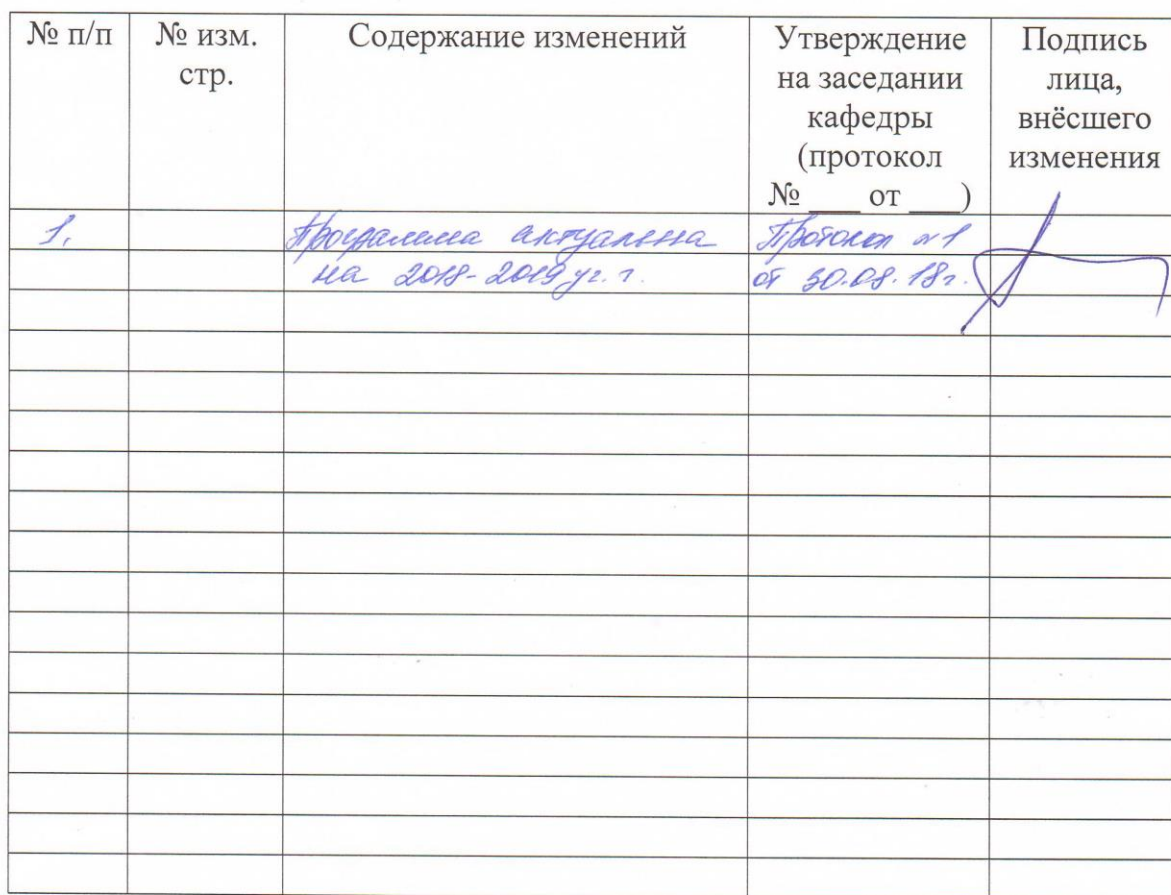 № п/п
№ изм.
стр.
Содержание изменений
Утверждение
на заседании
кафедры
(протокол
№ ___ от ___)
Подпись
лица,
внёсшего
изменения
1.
Программа актуальна
на 2018-2019 уч. г.
Протокол №1
от 30.08.18г.